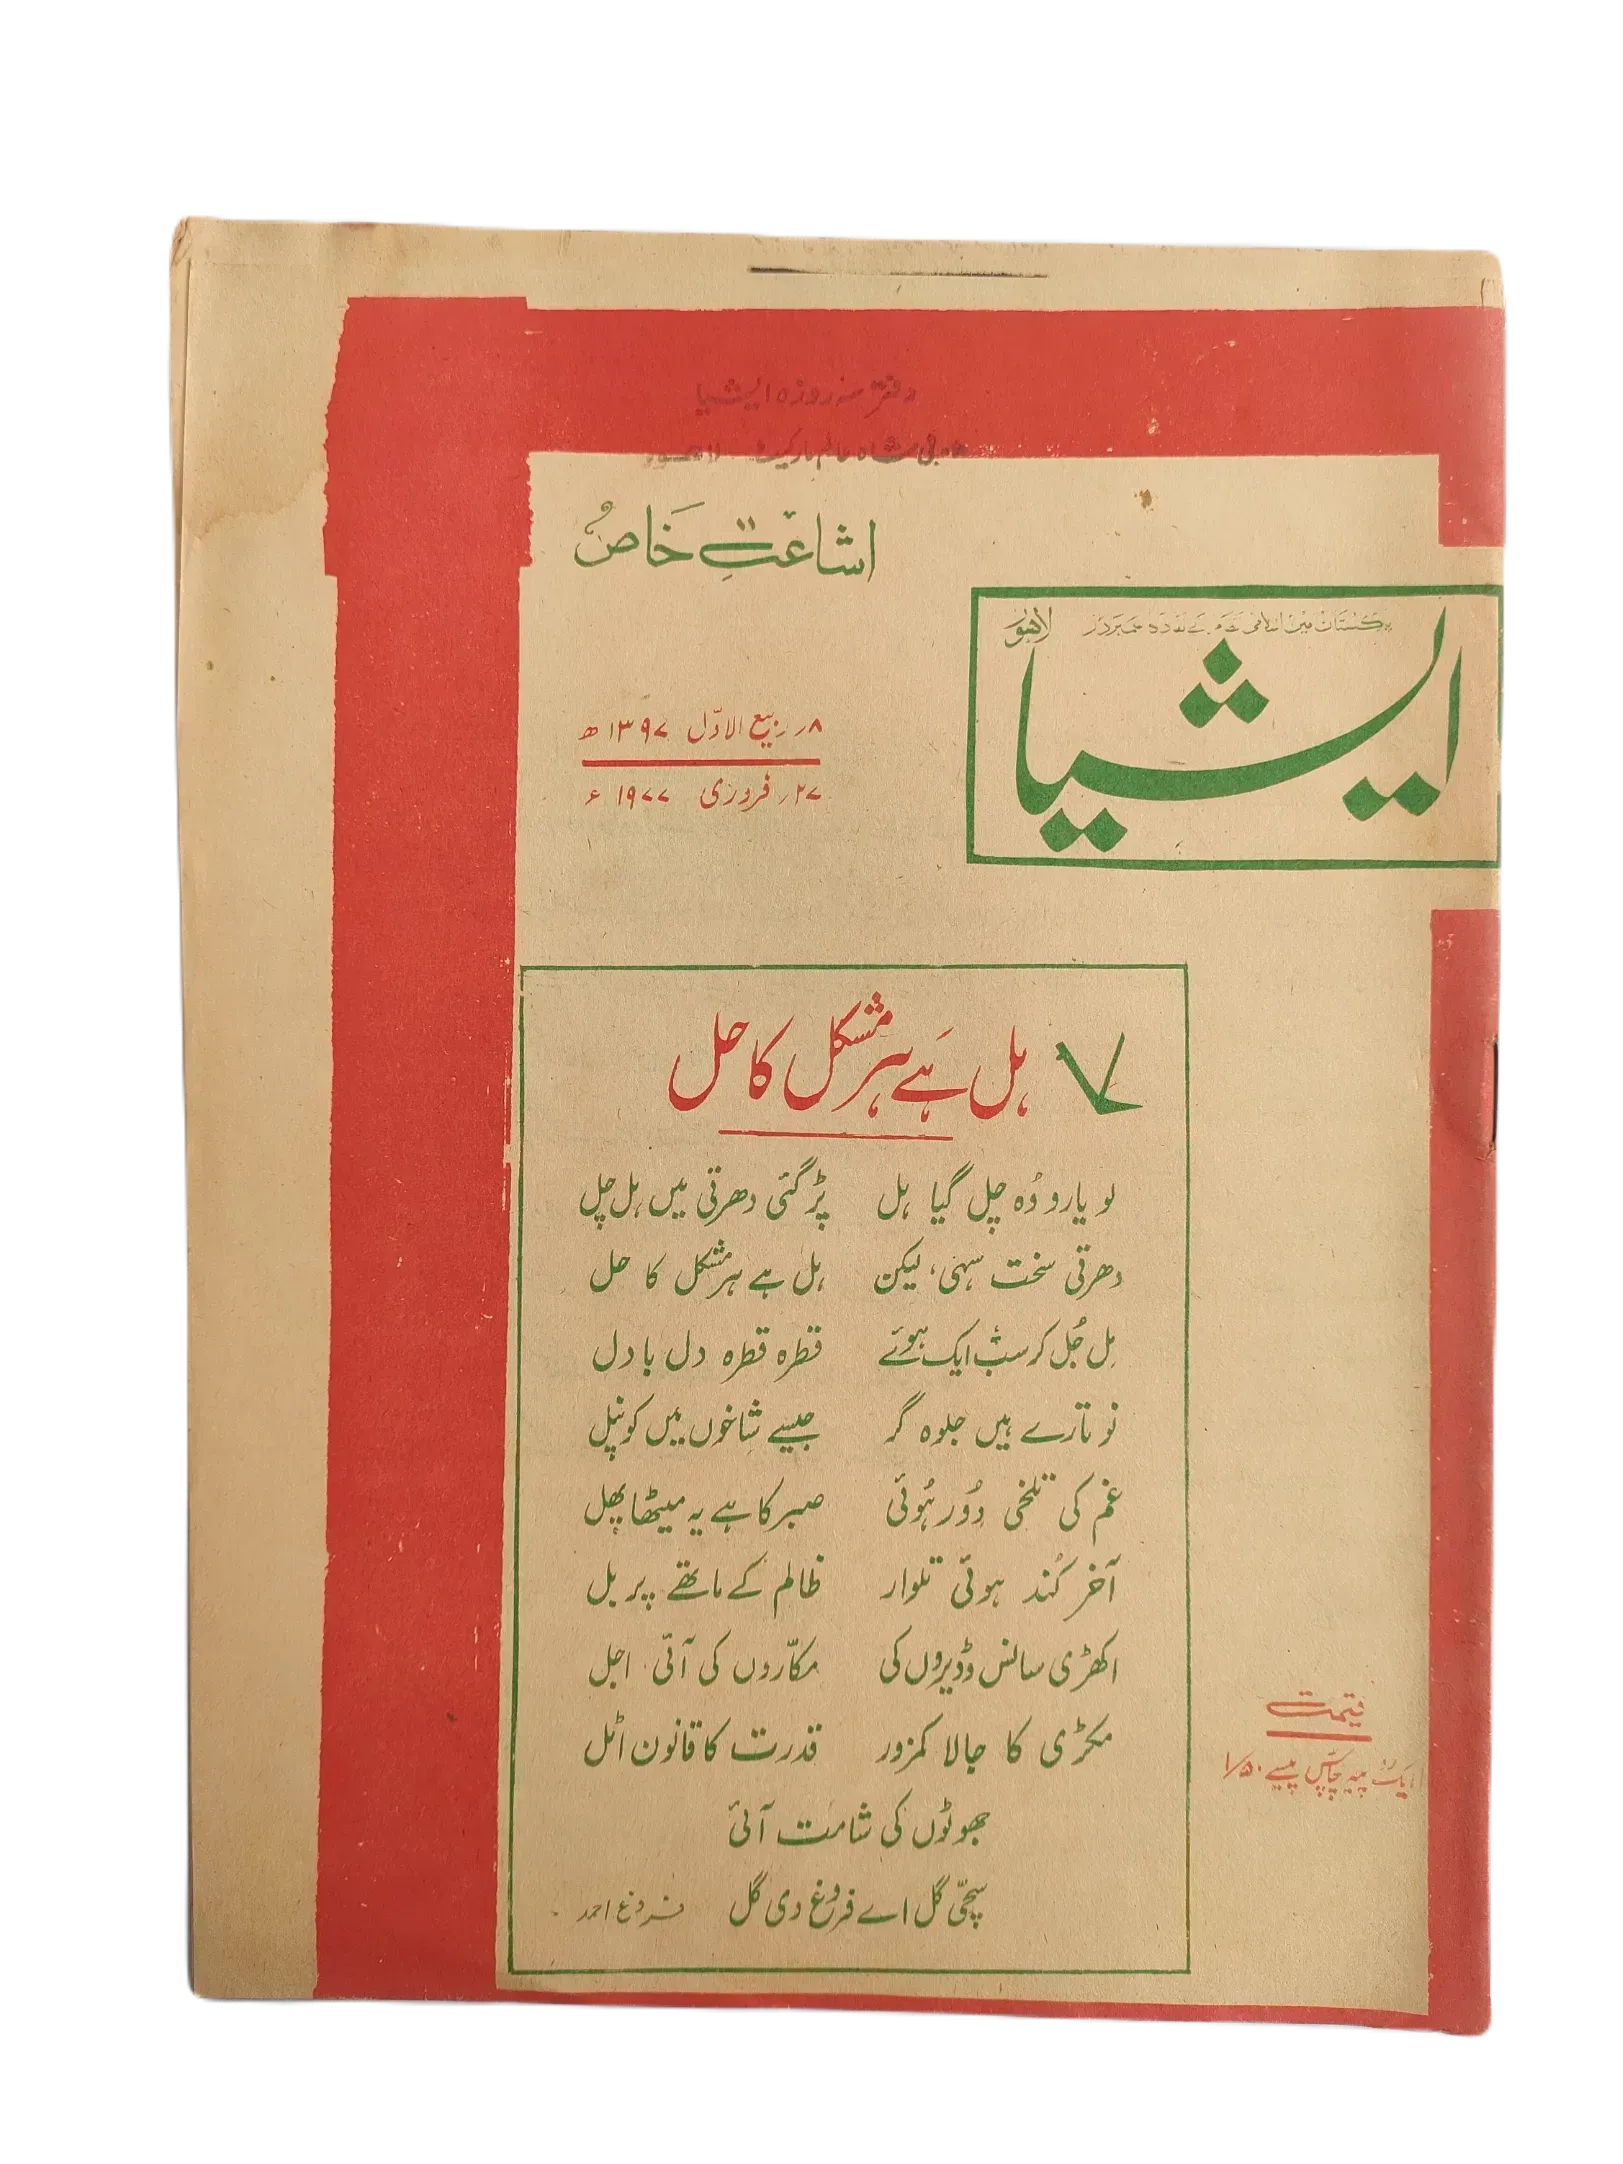 دفتر سہ روزہ ایشیا
شاہ عالم مارکیٹ لاہور
اشاعتِ خاص
پاکستان میں اسلامی نظام کے علمبردار
لاہور
ایشیا
۸؍ ربیع الاوّل ۱۳۹۷ھ
۲۷؍ فروری ۱۹۷۷ء
ہل ہے ہر مشکل کا حل
لو یارو وُہ چل گیا ہل پڑ گئی دھرتی میں ہل چل
دھرتی سخت سہی، لیکن ہل ہے ہر مشکل کا حل
مِل جُل کر سب ایک ہوئے قطرہ قطرہ دل بادل
نو تارے ہیں جلوہ گر جیسے شاخوں میں کونپل
غم کی تلخی دُور ہُوئی صبر کا ہے یہ میٹھا پھل
آخر کُند ہوئی تلوار ظالم کے ماتھے پر بل
اکھڑی سانس وڈیروں کی مکّاروں کی آئی اجل
مکڑی کا جالا کمزور قدرت کا قانون اٹل
جھوٹوں کی شامت آئی
سچّی گل اے فروغ دی گل
فروغ احمد
قیمت
ایک روپیہ پچاس پیسے ۱/۵۰